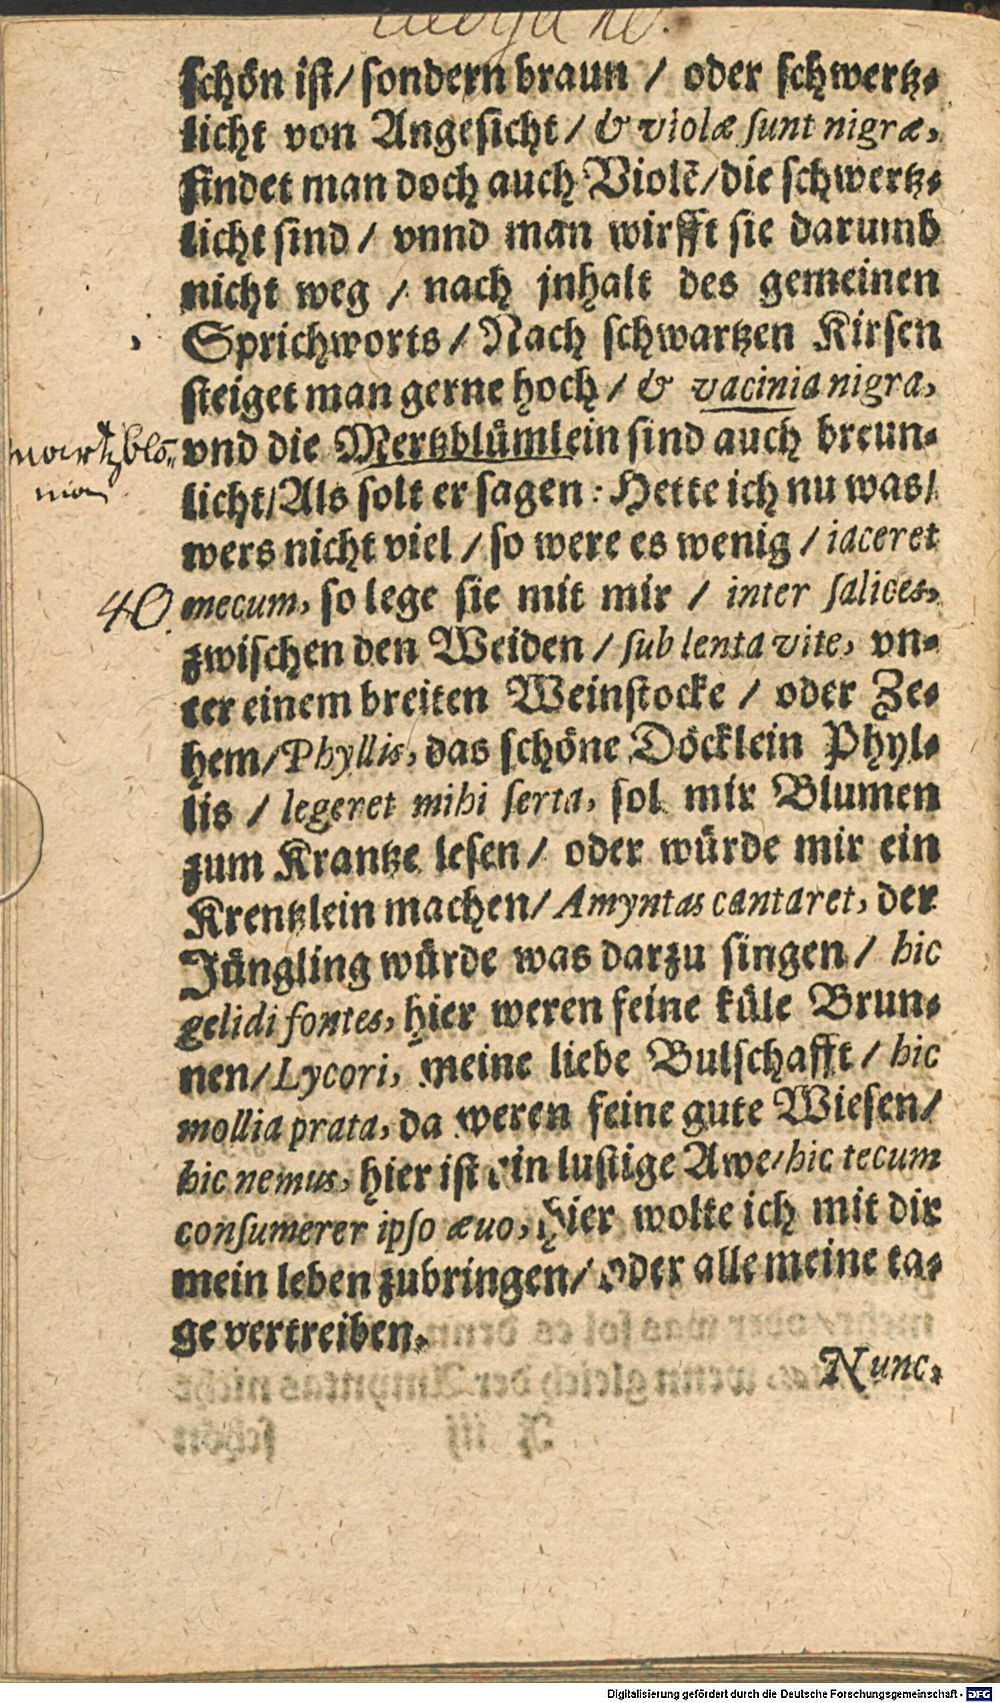 schön ist/ sondern braun / oder schwertz⸗
licht von Angesicht / & violæ sunt nigræ,
findet man doch auch Violē/die schwertz⸗
licht sind / vnnd man wirfft sie darumb
nicht weg / nach jnhalt des gemeinen
Sprichworts / Nach schwartzen Kirsen
steiget man gerne hoch / & vacinia nigra,
vnd die Mertzblümlein sind auch breun⸗
licht/Als solt er sagen: Hette ich nu was/
wers nicht viel / so were es wenig / iaceret
40
mecum, so lege sie mit mir / inter salices,
zwischen den Weiden / sub lenta vite, vn⸗
ter einem breiten Weinstocke / oder Ze⸗
hem/Phyllis, das schöne Döcklein Phyl⸗
lis / legeret mihi serta, sol mir Blumen
zum Krantze lesen / oder würde mir ein
Krentzlein machen/ Amyntas cantaret, der
Jüngling würde was darzu singen / hic
gelidi fontes, hier weren feine küle Brun⸗
nen/Lycori, meine liebe Bulschafft / hic
mollia prata, da weren feine gute Wiesen/
hic nemus, hier ist ein lustige Awe/hic tecum
consumerer ipso æuo, hier wolte ich mit dir
mein leben zubringen/ oder alle meine ta⸗
ge vertreiben.
Nunc,
Digitalisierung gefördert durch die Deutsche Forschungsgemeinschaft - DFG